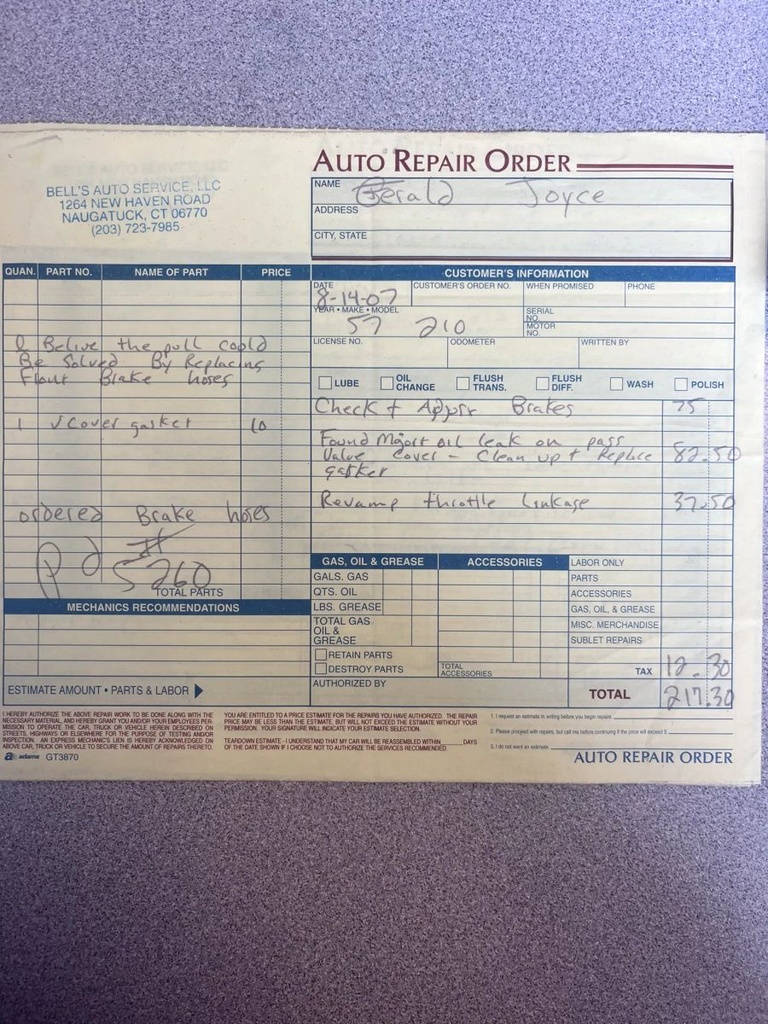 AUTO REPAIR ORDER
BELL'S AUTO SERVICE, LLC
1264 NEW HAVEN ROAD
NAUGATUCK, CT 06770
(203) 723-7985
NAME Gerald Joyce
ADDRESS
CITY, STATE
QUAN. PART NO. NAME OF PART PRICE
I Belive the pull could
Be Solved By Replacing
Front Brake hoses
1 VCover gasket 10
ordered Brake hoses
Pd # 5260
TOTAL PARTS
MECHANICS RECOMMENDATIONS
ESTIMATE AMOUNT • PARTS & LABOR
CUSTOMER'S INFORMATION
DATE CUSTOMER'S ORDER NO. WHEN PROMISED PHONE
8-14-07
YEAR • MAKE • MODEL SERIAL NO.
57 210 MOTOR NO.
LICENSE NO. ODOMETER WRITTEN BY
LUBE OIL CHANGE FLUSH TRANS. FLUSH DIFF. WASH POLISH
Check + Adjust Brakes 75
Found Majort oil leak on pass
Valve cover - Clean up + Replace 82.50
gasket
Revamp throttle linkage 37.50
GAS, OIL & GREASE ACCESSORIES LABOR ONLY
GALS. GAS PARTS
QTS. OIL ACCESSORIES
LBS. GREASE GAS, OIL & GREASE
TOTAL GAS OIL & GREASE MISC. MERCHANDISE
SUBLET REPAIRS
RETAIN PARTS
DESTROY PARTS TOTAL ACCESSORIES TAX 12.30
AUTHORIZED BY TOTAL 217.30
I HEREBY AUTHORIZE THE ABOVE REPAIR WORK TO BE DONE ALONG WITH THE
NECESSARY MATERIAL, AND HEREBY GRANT YOU AND/OR YOUR EMPLOYEES PER-
MISSION TO OPERATE THE CAR, TRUCK OR VEHICLE HEREIN DESCRIBED ON
STREETS, HIGHWAYS OR ELSEWHERE FOR THE PURPOSE OF TESTING AND/OR
INSPECTION. AN EXPRESS MECHANIC'S LIEN IS HEREBY ACKNOWLEDGED ON
ABOVE CAR, TRUCK OR VEHICLE TO SECURE THE AMOUNT OF REPAIRS THERETO.
adams GT3870
YOU ARE ENTITLED TO A PRICE ESTIMATE FOR THE REPAIRS YOU HAVE AUTHORIZED. THE REPAIR
PRICE MAY BE LESS THAN THE ESTIMATE, BUT WILL NOT EXCEED THE ESTIMATE WITHOUT YOUR
PERMISSION. YOUR SIGNATURE WILL INDICATE YOUR ESTIMATE SELECTION.
TEARDOWN ESTIMATE - I UNDERSTAND THAT MY CAR WILL BE REASSEMBLED WITHIN DAYS
OF THE DATE SHOWN IF I CHOOSE NOT TO AUTHORIZE THE SERVICES RECOMMENDED.
1. I request an estimate in writing before you begin repairs
2. Please proceed with repairs, but call me before continuing if the price will exceed $
3. I do not want an estimate
AUTO REPAIR ORDER